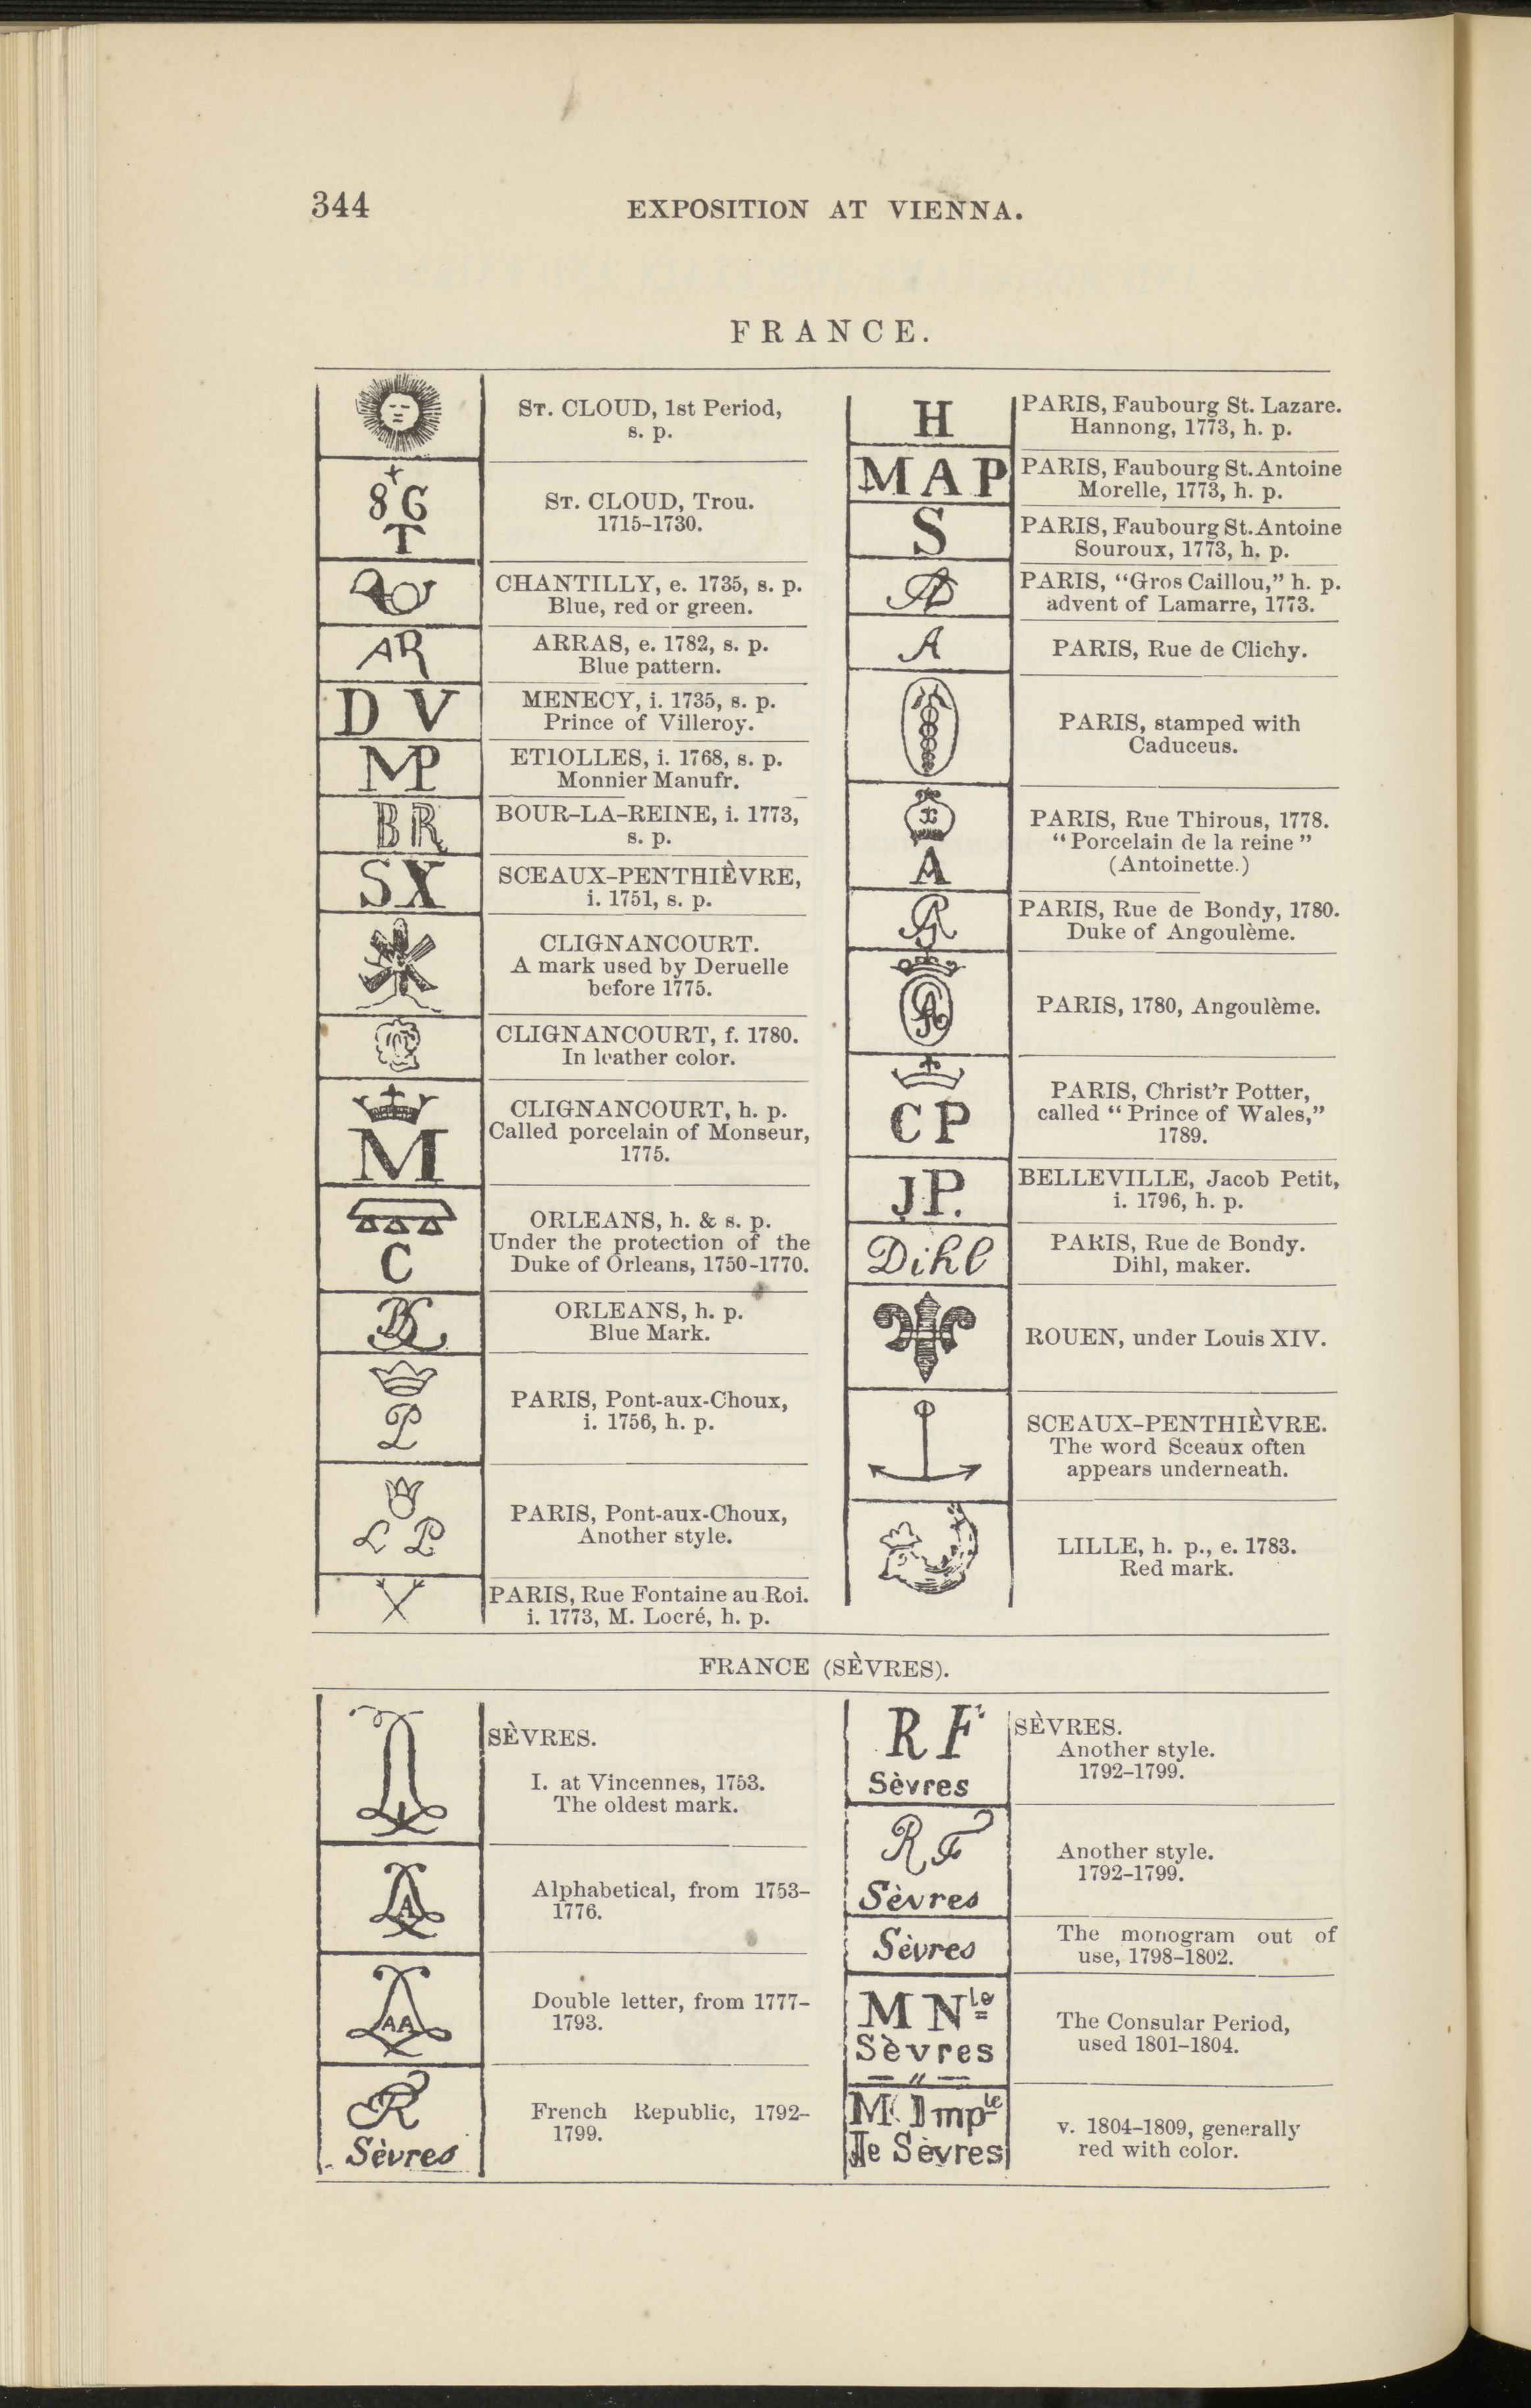 344
EXPOSITION AT VIENNA.
FRANCE.
ST. CLOUD, 1st Period,
s. p.
8 G
T
ST. CLOUD, Trou.
1715–1730.
CHANTILLY, e. 1735, s. p.
Blue, red or green.
AR
ARRAS, e. 1782, s. p.
Blue pattern.
D V
MENECY, i. 1735, s. p.
Prince of Villeroy.
MP
ETIOLLES, i. 1768, s. p.
Monnier Manufr.
BR
BOUR-LA-REINE, i. 1773,
s. p.
SX
SCEAUX-PENTHIÈVRE,
i. 1751, s. p.
CLIGNANCOURT.
A mark used by Deruelle
before 1775.
CLIGNANCOURT, f. 1780.
In leather color.
M
CLIGNANCOURT, h. p.
Called porcelain of Monseur,
1775.
C
ORLEANS, h. & s. p.
Under the protection of the
Duke of Orleans, 1750–1770.
ORLEANS, h. p.
Blue Mark.
P
PARIS, Pont-aux-Choux,
i. 1756, h. p.
L P
PARIS, Pont-aux-Choux,
Another style.
PARIS, Rue Fontaine au Roi.
i. 1773, M. Locré, h. p.
H
PARIS, Faubourg St. Lazare.
Hannong, 1773, h. p.
M A P
PARIS, Faubourg St. Antoine
Morelle, 1773, h. p.
S
PARIS, Faubourg St. Antoine
Souroux, 1773, h. p.
PARIS, “Gros Caillou,” h. p.
advent of Lamarre, 1773.
A
PARIS, Rue de Clichy.
PARIS, stamped with
Caduceus.
A
PARIS, Rue Thirous, 1778.
“Porcelain de la reine”
(Antoinette.)
PARIS, Rue de Bondy, 1780.
Duke of Angoulème.
PARIS, 1780, Angoulème.
C P
PARIS, Christ’r Potter,
called “Prince of Wales,”
1789.
JP.
BELLEVILLE, Jacob Petit,
i. 1796, h. p.
Dihl
PARIS, Rue de Bondy.
Dihl, maker.
ROUEN, under Louis XIV.
SCEAUX-PENTHIÈVRE.
The word Sceaux often
appears underneath.
LILLE, h. p., e. 1783.
Red mark.
FRANCE (SÈVRES).
SÈVRES.
I. at Vincennes, 1753.
The oldest mark.
A
Alphabetical, from 1753–
1776.
AA
Double letter, from 1777–
1793.
Sèvres
French Republic, 1792–
1799.
R F
Sèvres
SÈVRES.
Another style.
1792–1799.
R F
Sèvres
Another style.
1792–1799.
Sèvres
The monogram out of
use, 1798–1802.
M Nle
Sèvres
The Consular Period,
used 1801–1804.
M. Imple
de Sèvres
v. 1804–1809, generally
red with color.